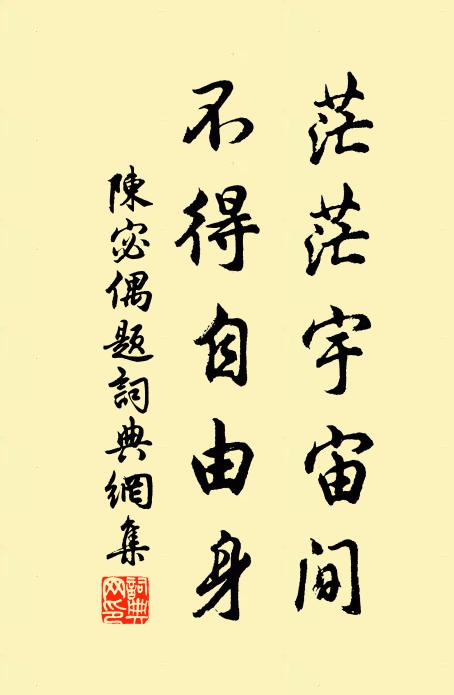 茫茫宇宙間
不得自由身
陳宓偶題詞典網集
詞典網印